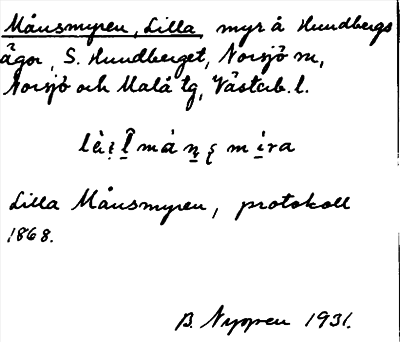 Månsmyren, Lilla, myr å Hundbergs
ägor, S. Hundberget, Norsjö sn,
Norsjö och Malå tg, Västerb. l.
Lilla Månsmyren, protokoll
1868.
B. Nyppen 1931.